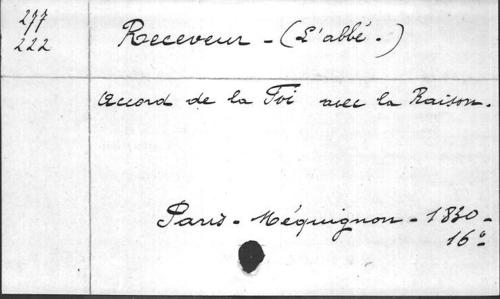 277
222
Receveur - (L'abbé.)
Accord de la Foi avec la Raison.
Paris - Méquignon - 1830 -
16°